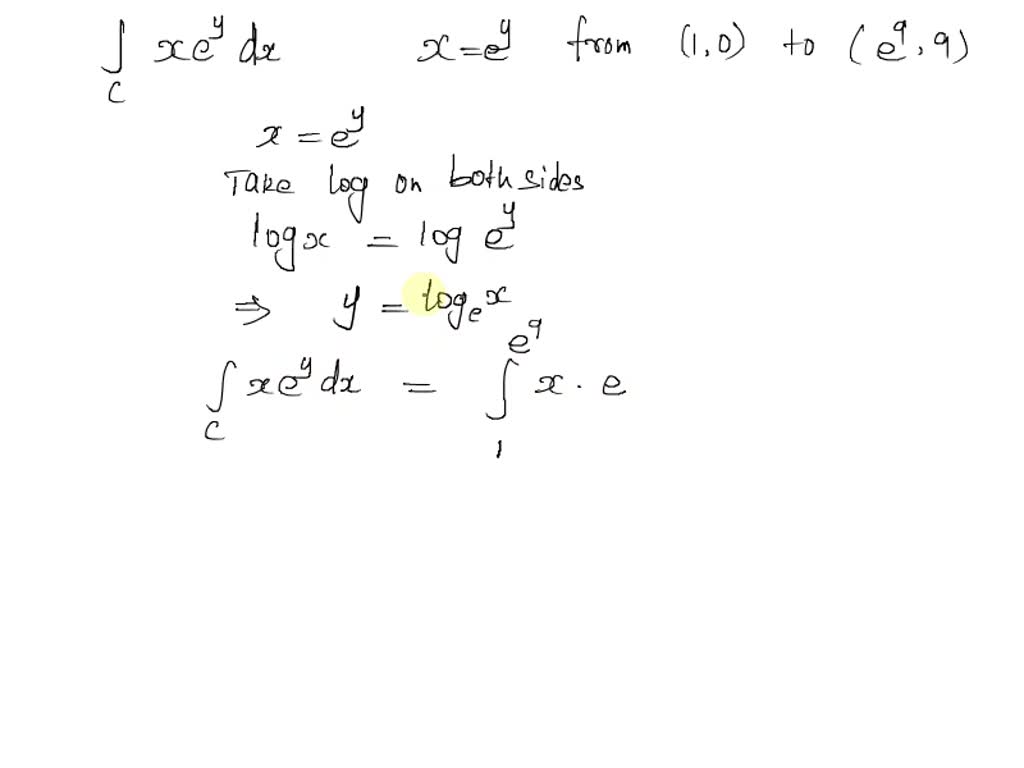 ∫_C x e^y dx    x = e^y from (1,0) to (e^9, 9)
x = e^y
Take log on both sides
log x = log e^y
⇒ y = log_e x
∫_C x e^y dx = ∫_1^{e^9} x · e